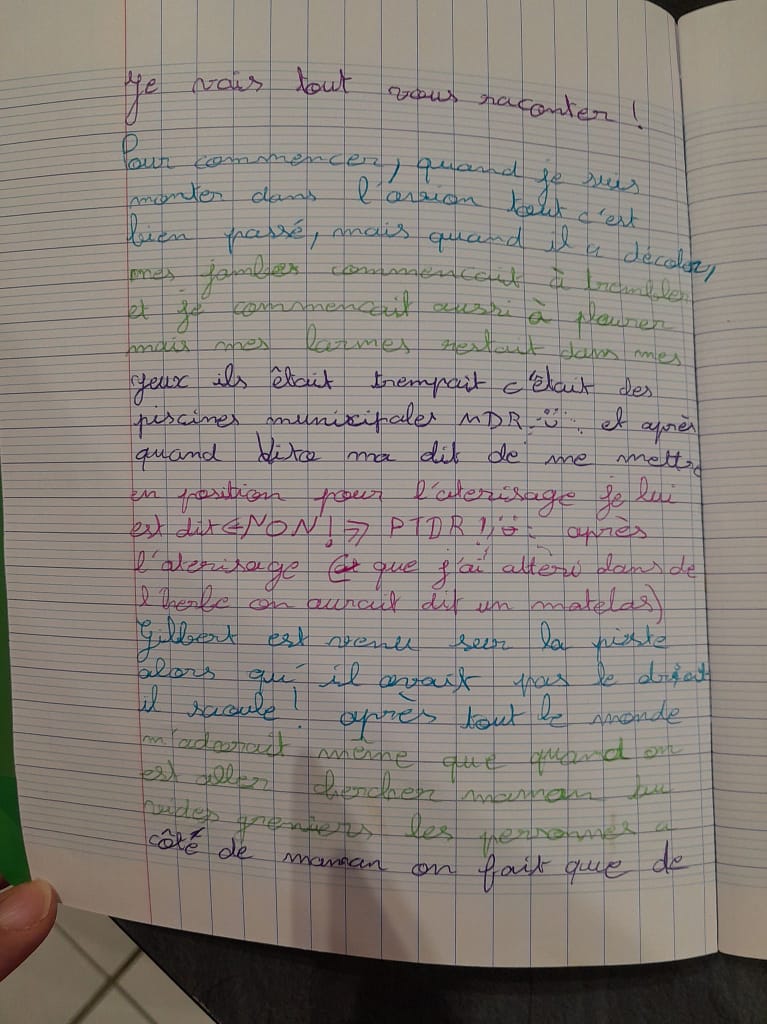 Je vais tout vous raconter !
Pour commencer, quand je suis
monter dans l'avion tout c'est
bien passé, mais quand il a décoler,
mes jambes commencait à trembler
et je commencait aussi à pleurer
mais mes larmes restait dans mes
yeux ils êtait trempait c'êtait des
piscines municipales MDR et après
quand ma dit de me mettre
en position pour l'aterisage je lui
est dit «NON!» PTDR ! après
l'aterisage (que j'ai attèri dans de
l'herbe on aurait dit un matelas)
Gilbert est venu sur la piste
alors qu'il avait pas le droit
il saoule ! après tout le monde
m'adorait même que quand on
est aller chercher maman au
vides greniers les personnes a
côté de maman on fait que de